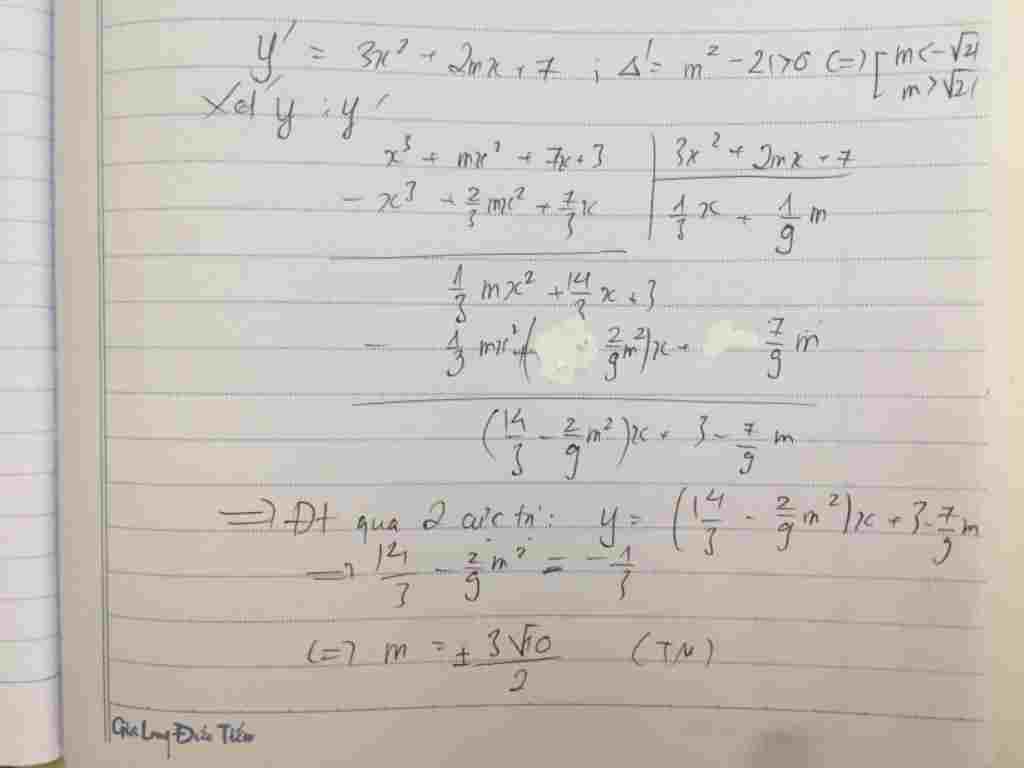 y' = 3x² + 2mx + 7 ; Δ' = m² - 21 > 0 (=) [ m < -√21
m > √21
Xét y : y'
x³ + mx² + 7x + 3 | 3x² + 2mx + 7
- x³ + 2/3 mx² + 7/3 x | 1/3 x + 1/9 m
1/3 mx² + 14/3 x + 3
- 1/3 mx² + ( 2/9 m²)x + 7/9 m
(14/3 - 2/9 m²)x + 3 - 7/9 m
=) Đt qua 2 cực trị: y = (14/3 - 2/9 m²)x + 3 - 7/9 m
=) 14/3 - 2/9 m² = - 1/3
(=) m = ± 3√10/2 (TM)
Gia Long Đức Tiến